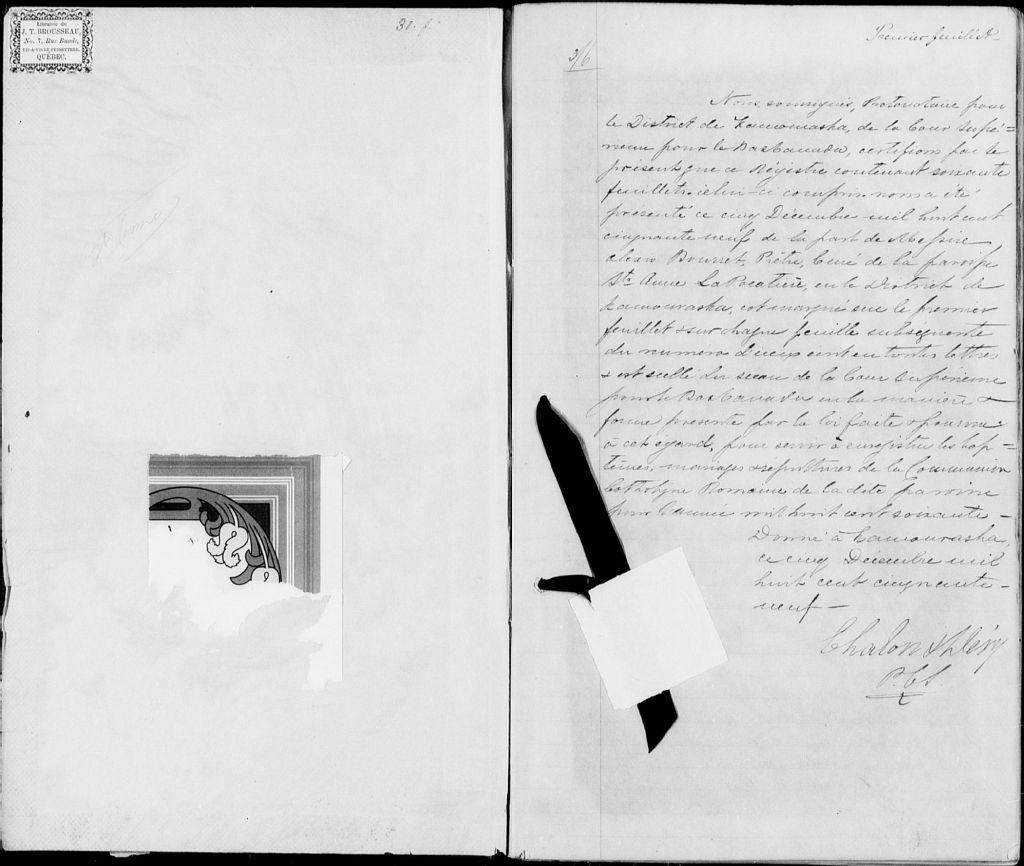 Librairie de
J. T. BROUSSEAU,
No. 7, Rue Buade,
VIS-A-VIS LE PRESBYTERE,
QUÉBEC.
30. f.
Ste Anne
Premier feuillet
3/6
Nous, soussignés, Protonotaire pour
le District de Kamouraska, de la Cour Supé=
rieure pour le Bas Canada, certifions par le
présent que ce Régistre contenant soixante
feuillets, celui-ci compris nous a été
présenté ce cinq Décembre mil huit cent
cinquante neuf de la part de Messire
Alexis Bourret, Prêtre, Curé de la paroisse
Ste Anne La Pocatière, en le District de
Kamouraska, est marqué sur le premier
feuillet & sur chaque feuille subséquente
du numero d'iceux écrit en toutes lettres
& est scellé du sceau de la Cour Supérieure
pour le Bas Canada en la manière &
forme presente par la loi faite & pourvue
à cet egard, pour servir à enregistrer les bap=
têmes, mariages & sepultures de la Communion
Catholique Romaine de la dite paroisse
pour l'année mil huit cent soixante -
Donné à Kamouraska,
ce cinq Décembre mil
huit cent cinquante -
neuf -
Chalon & Déry
P. C. S.